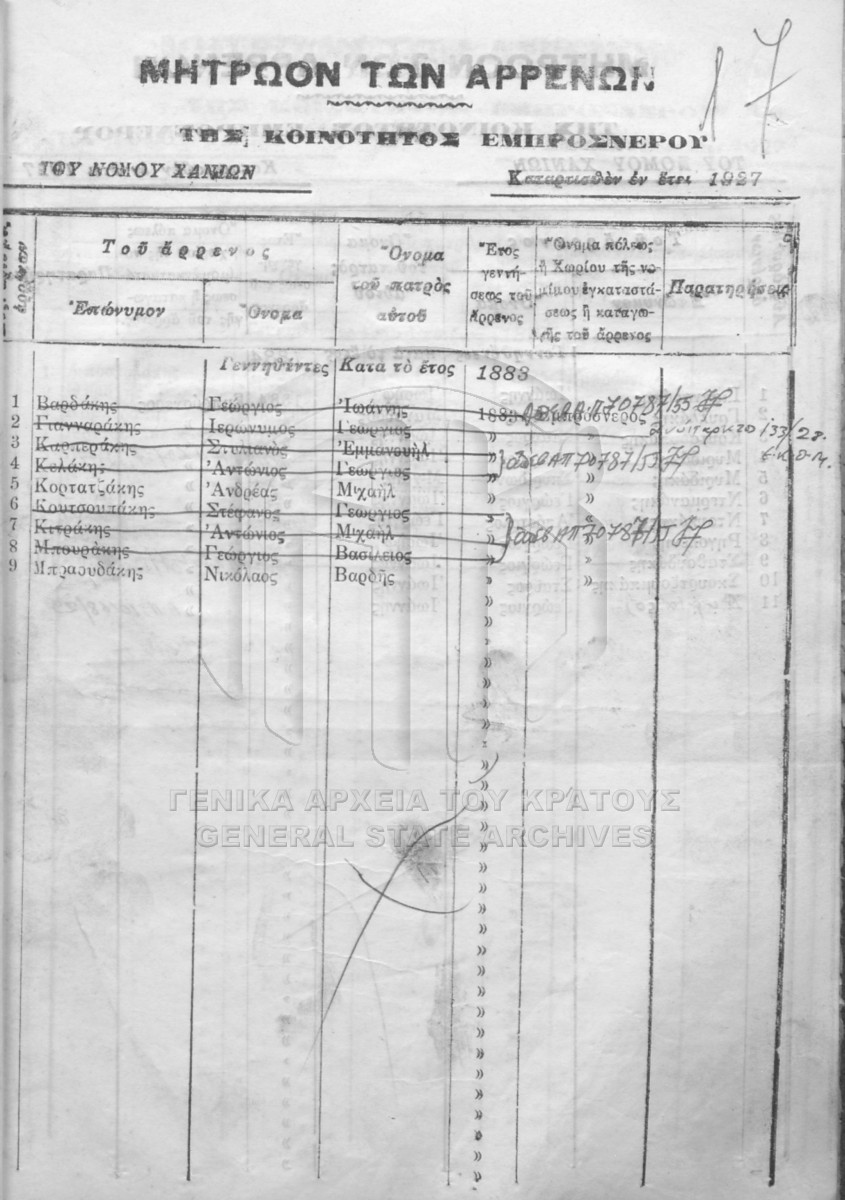 17
ΜΗΤΡΩΟΝ ΤΩΝ ΑΡΡΕΝΩΝ
ΤΗΣ ΚΟΙΝΟΤΗΤΟΣ ΕΜΠΡΟΣΝΕΡΟΥ
ΤΟΥ ΝΟΜΟΥ ΧΑΝΙΩΝ Καταρτισθὲν ἐν ἔτει 1927
Τοῦ ἄρρενος
Ἐπώνυμον Ὄνομα
Ὄνομα
τοῦ πατρὸς
αὐτοῦ
Ἔτος
γεννή-
σεως τοῦ
ἄρρενος
Ὄνομα πόλεως
ἢ Χωρίου τῆς νο-
μίμου ἐγκαταστά-
σεως ἢ καταγω-
γῆς τοῦ ἄρρενος
Παρατηρήσεις
Γεννηθέντες Κατα τὸ ἔτος 1883
1 Βαρδάκης Γεώργιος Ἰωάννης 1883 Ἐμπρόσνερος ΑΠ70787/55
2 Γιανναράκης Ιερώνυμος Γεώργιος » »
3 Καρπεράκης Στυλιανὸς Ἐμμανουὴλ » »
4 Κελάκης Ἀντώνιος Γεώργιος » » ΑΠ70787/55
5 Κορτατζάκης Ἀνδρέας Μιχαὴλ » »
6 Κουτσουπάκης Στέφανος Γεωργιος » »
7 Κιτράκης Ἀντώνιος Μιχαὴλ » » ΑΠ70787/55
8 Μπουράκης Γεώργιος Βασίλειος » »
9 Μπραουδάκης Νικόλαος Βαρδῆς » »
ΓΕΝΙΚΑ ΑΡΧΕΙΑ ΤΟΥ ΚΡΑΤΟΥΣ
GENERAL STATE ARCHIVES